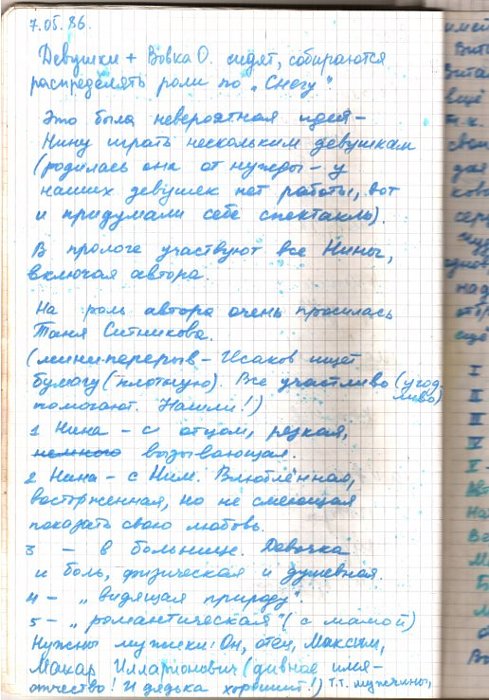 7.05.86.
Девушки + Вовка О. сидят, собираются
распределять роли по „Снегу".
Это была невероятная идея –
Нину играть нескольким девушкам
(родилась она от нужды – у
наших девушек нет работы, вот
и придумали себе спектакль).
В прологе участвуют все Нины,
включая автора.
На роль автора очень просилась
Таня Ситникова.
(мини-перерыв – Исаков ищет
бумагу (плотную). Все участливо (угод-
ливо)
помогают. Нашли!)
1 Нина – с отцом, резкая,
немного вызывающая.
2 Нина – с Ним. Влюблённая,
восторженная, но не смеющая
показать свою любовь.
3 – в больнице. Девочка
и боль, физическая и душевная.
4 – „видящая природу".
5 – „романтическая" (с мамой)
Нужны мужики: Он, отец, Максим,
Макар Илларионович (дивное имя-
отчество! И дядька хороший!) т.т. мужчины,